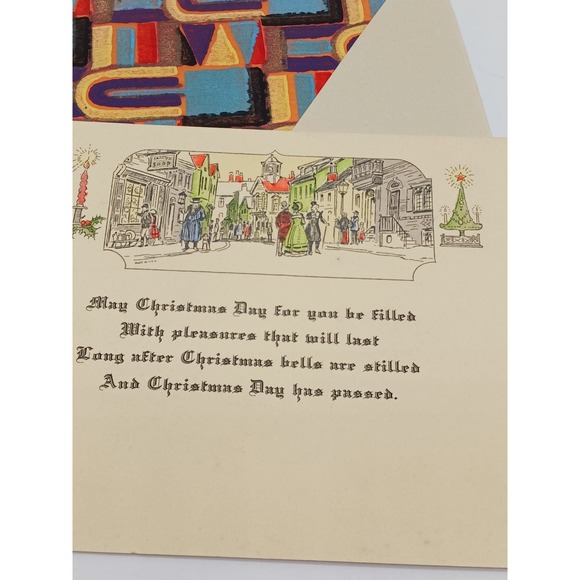 May Christmas Day for you be filled
With pleasures that will last
Long after Christmas bells are stilled
And Christmas Day has passed.